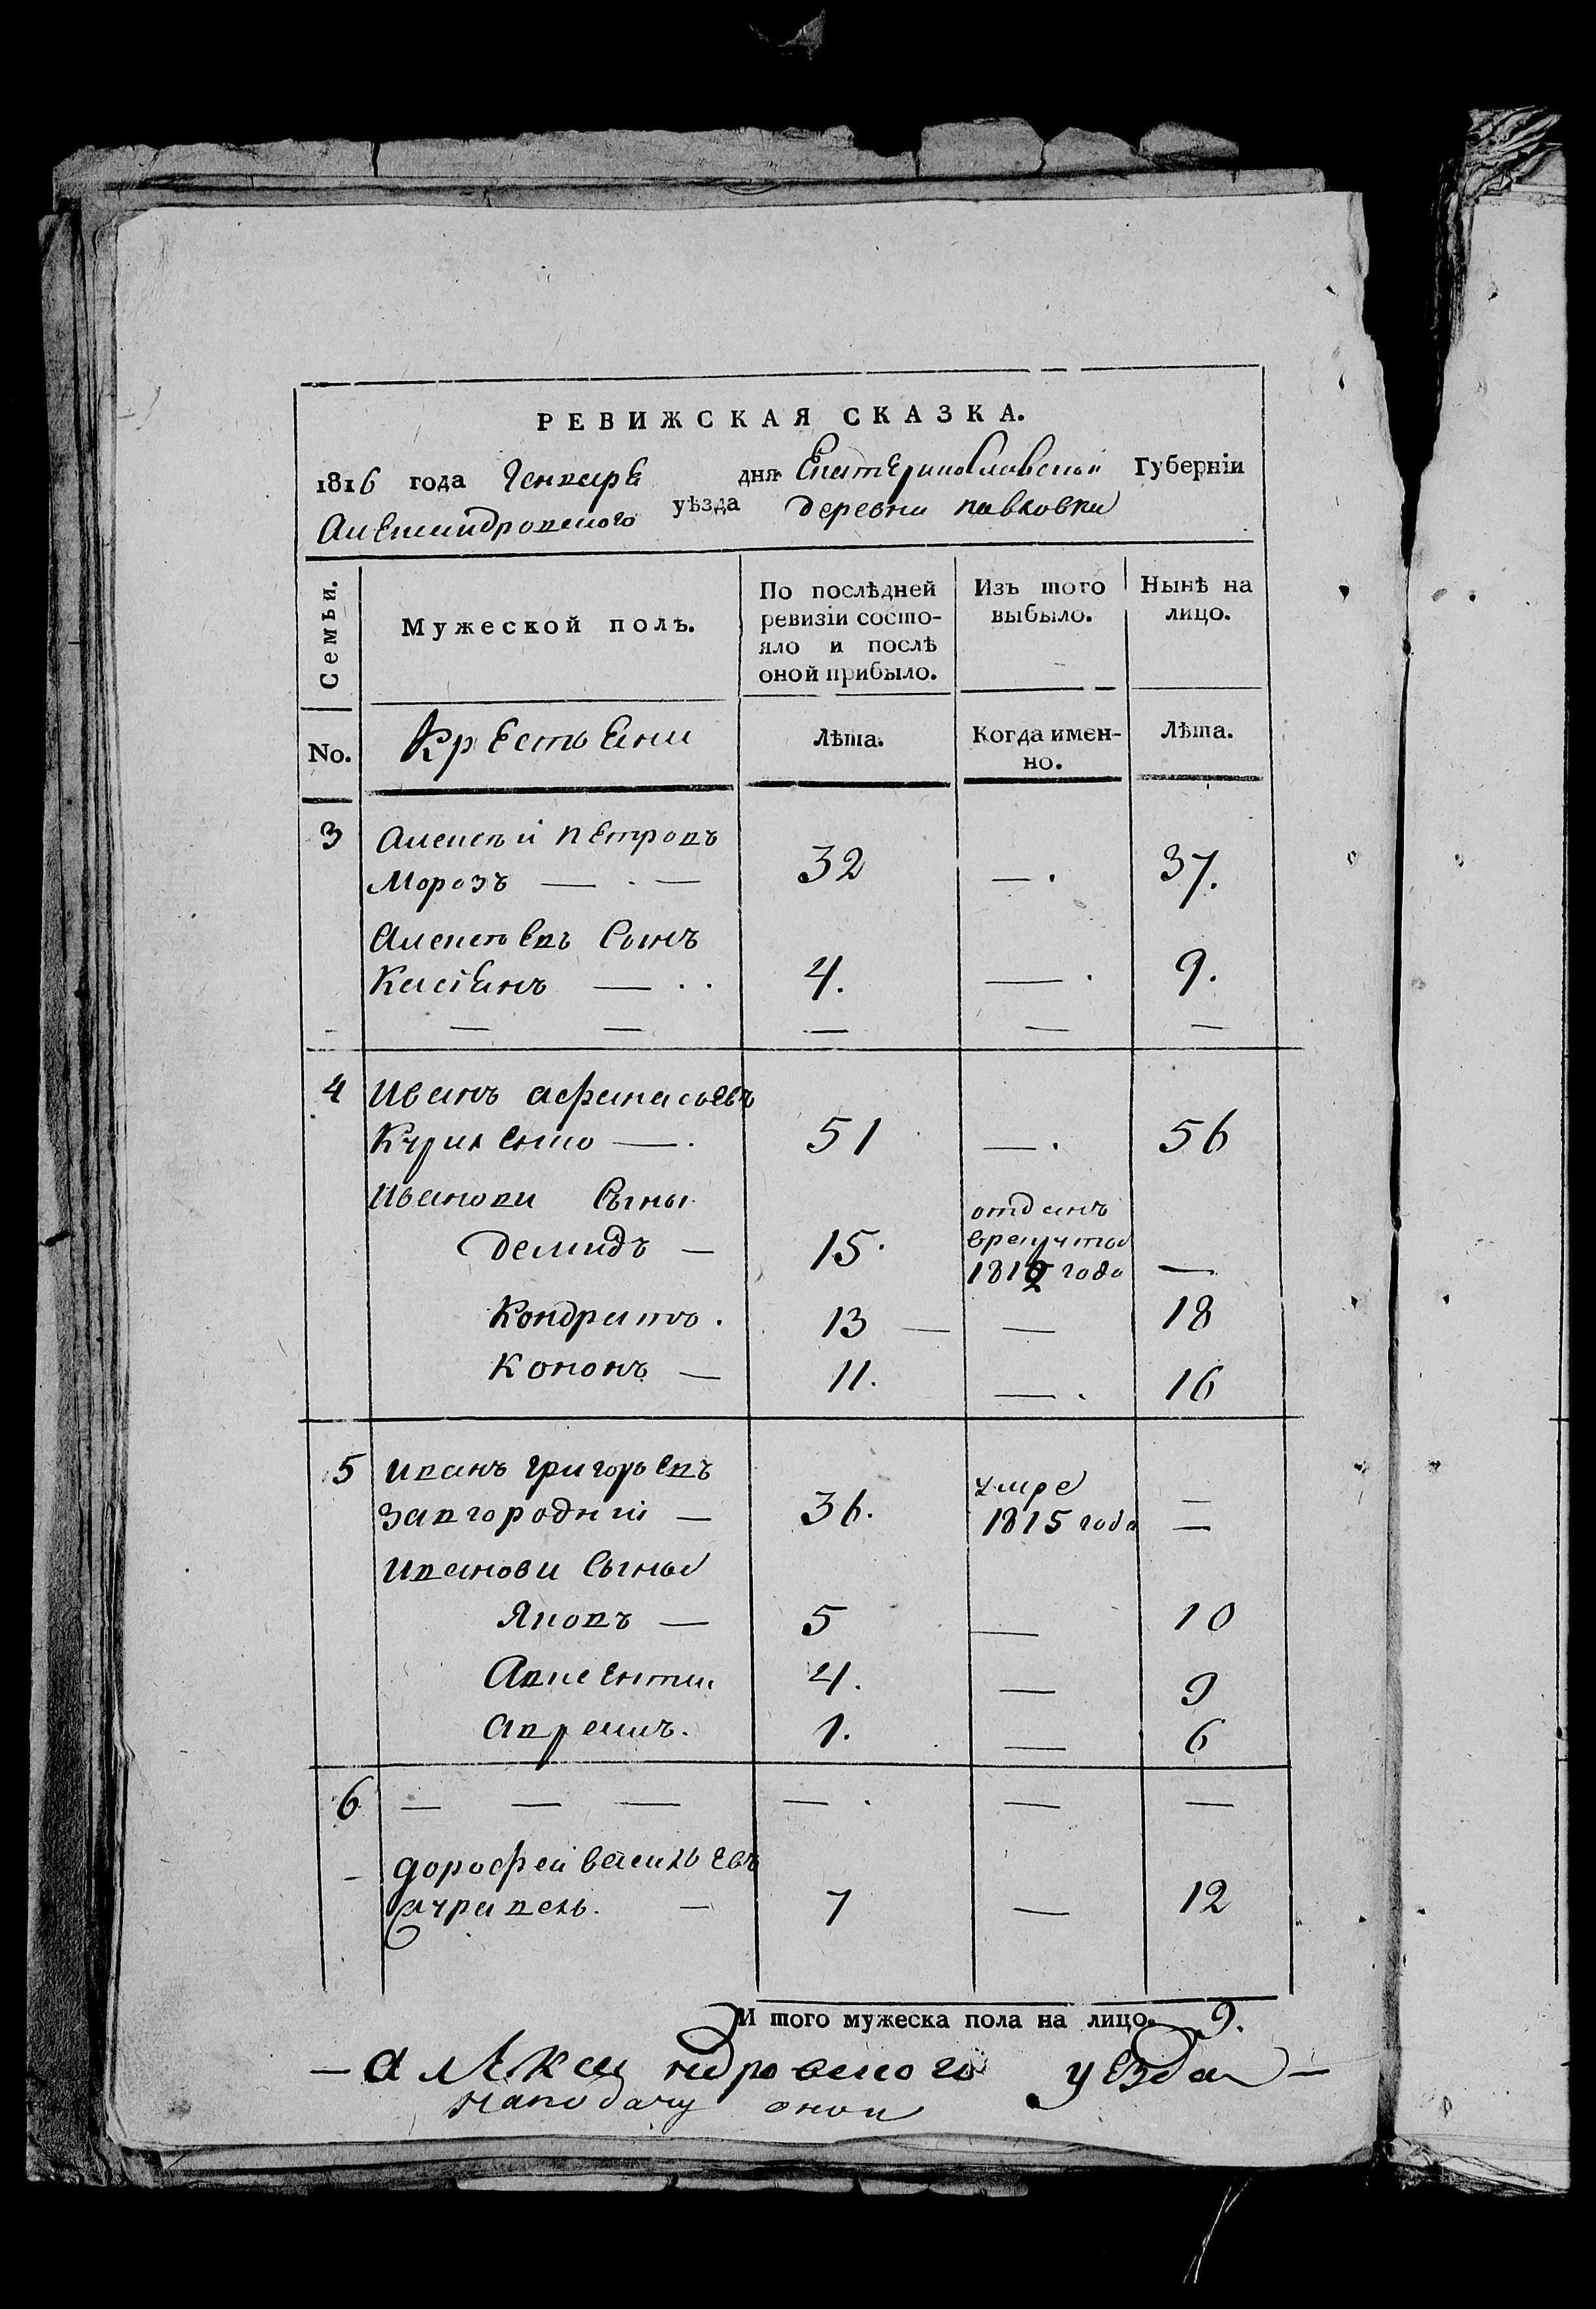 РЕВИЖСКАЯ СКАЗКА.
1816 года Генваря дня Екатеринославской Губерніи
Александровского уѣзда деревни павловки
Семьи.
Мужеской полъ.
По послѣдней ревизіи состо-яло и послѣ оной прибыло.
Изъ того выбыло.
Нынѣ на лицо.
No. Крестьяни Лѣта. Когда имен-но. Лѣта.
3 Алексѣй петровъ
Морозъ — . — 32 — . 37.
Алексѣевъ Сынъ
Касіянъ — . . 4. — . 9.
— — — — —
4 Иванъ афанасьевъ
— . 51 — . 56
Иванови Сыны
отданъ
демидъ — 15. врекруты
1812 года —
Кондратъ . 13 — — 18
Кононъ — 11. — . 16
5 иванъ григорьевъ
умре —
Завгородній — 36. 1815 года —
Иванови Сыны
Яковъ — 5 — 10
Авксентии 4. — 9
1. — 6
6 — — — — . — —
— дорофей васильевъ
— 7 — 12
И того мужеска пола на лицо. 9.
— александровского уезда —
наподачу оной